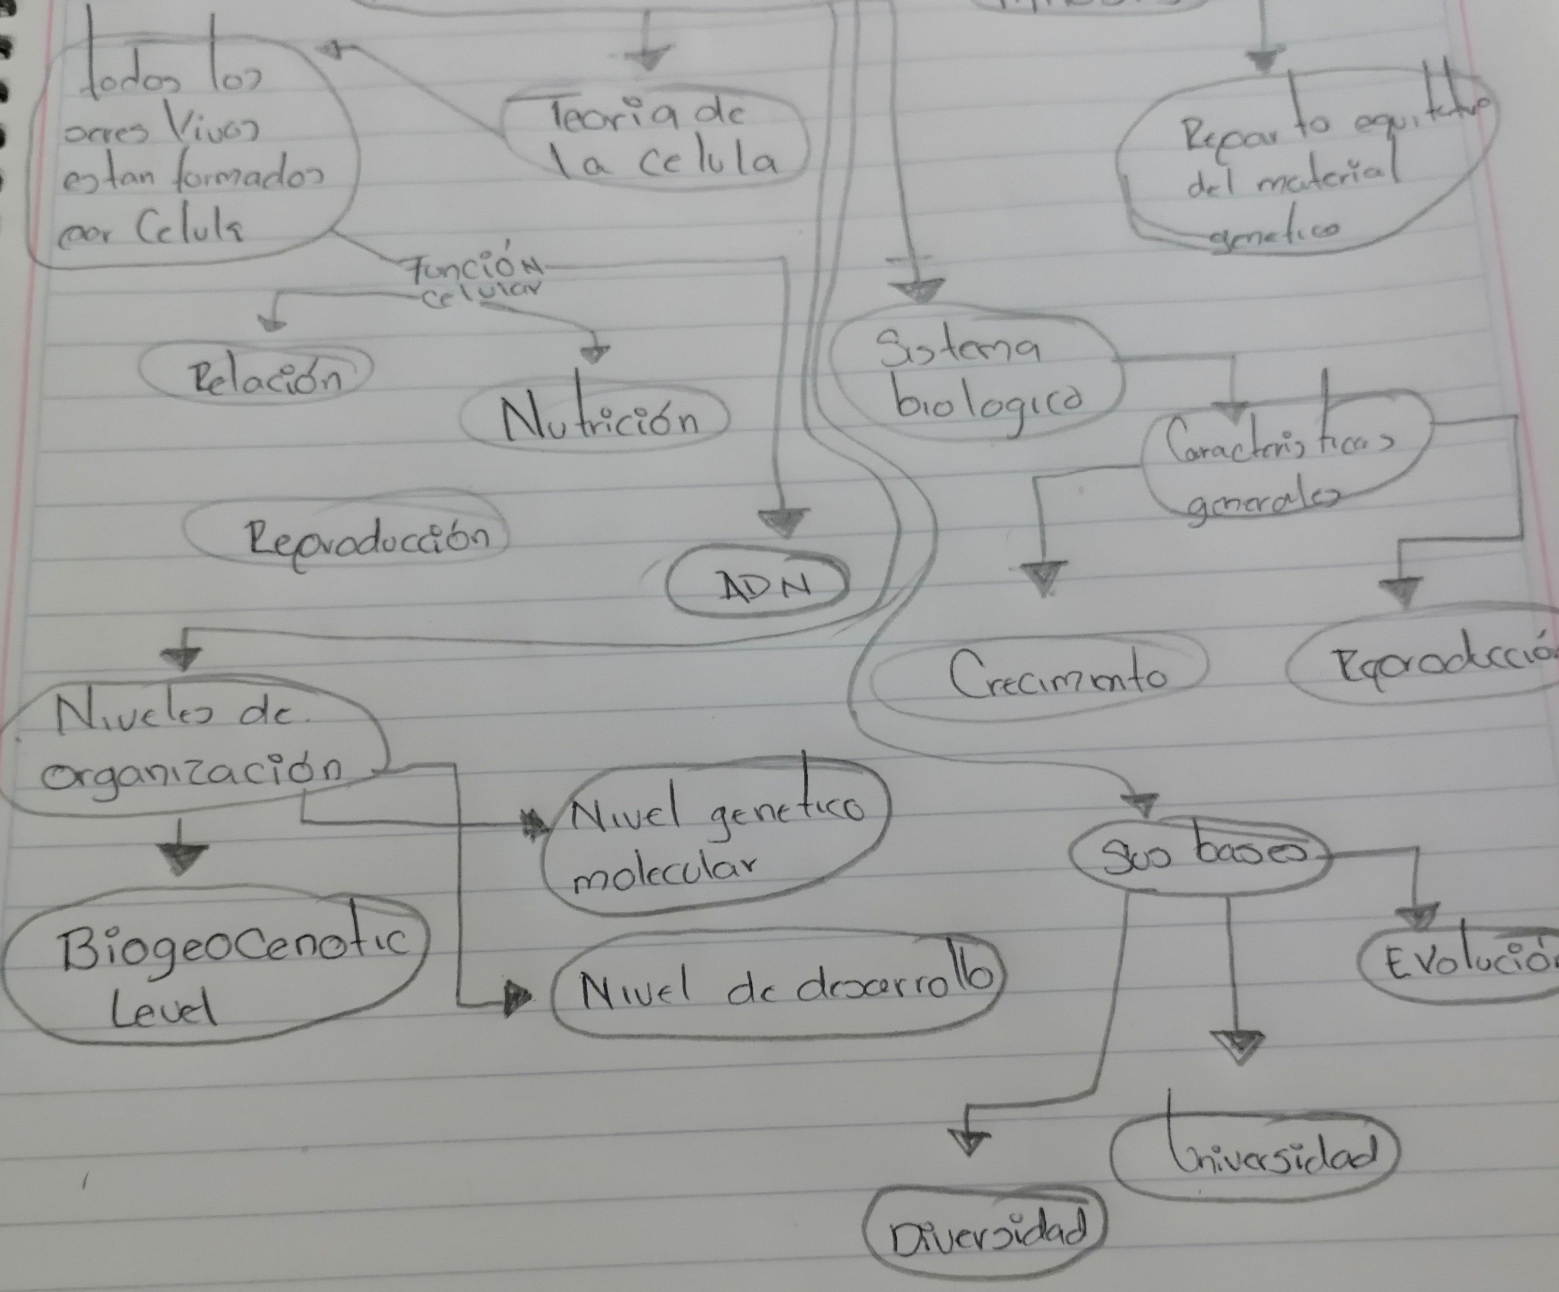 todos los
seres Vivos
estan formados
por Celula
Teoria de
la celula
Reparto equitativo
del material
genetico
Función
celular
Relación
Nutrición
Sistema
biologico
Caracteristicas
generales
Reproducción
ADN
Crecimiento
Reproducció
Niveles de
organización
Nivel genetico
molecular
Sus bases
BiogeoCenotic
Level
Nivel de desarrollo
Evolució
Universidad
Diversidad